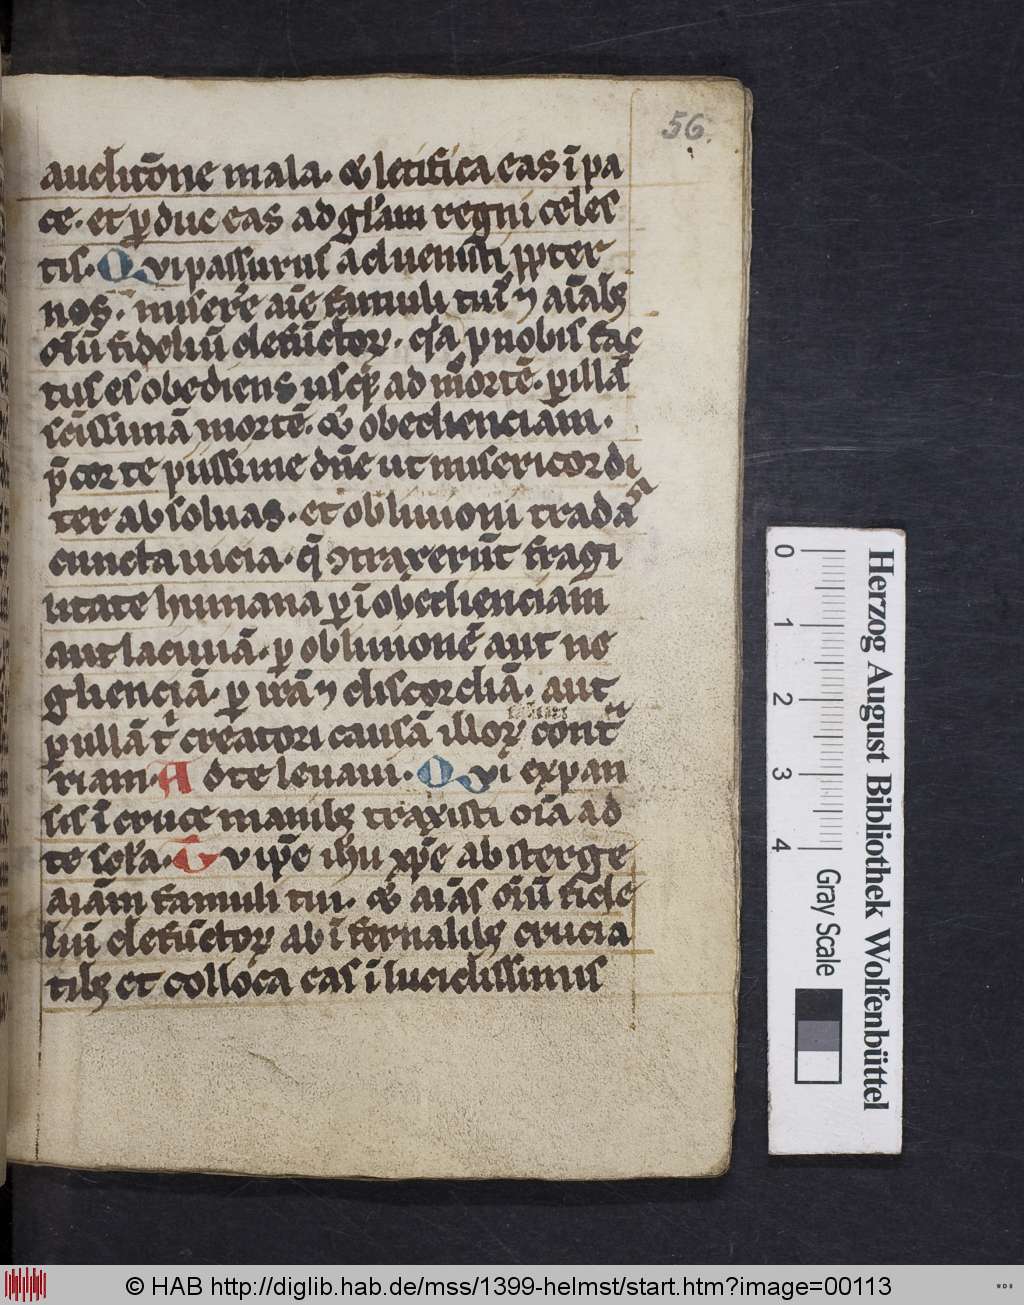 56.
auditōne mala. & letifica eas ī pa
ce. et ꝑduc eas ad gl̄am regni celes
tis. Qvi passurus aduenisti ꝓpter
nos. miserēre aīe famuli tui ⁊ aīabꝫ
oīū fideliū defūctoꝝ. ⁊ pro nobis fac
tus es obediens usqꝫ ad mortē. ꝑ illā
scīssimā mortē. & obedienciam.
p̄cor te piissime dn̄e ut misericordi
ter absoluas. et obliuioni tradas
cuncta uicia. q̄ ꝯtraxerūt fragi
litate humana ꝑ īobedienciam
aut laciuiā. ꝑ obliuionē aut ne
gliēnciā. ꝑ irā ⁊ discordiā. aut
ꝑ ullā creatori causā illoꝝ cont̄
riam. Ad te leuaui. Qvi expan
sis ī cruce manibꝫ traxisti oīa ad
te secl̄a. Tv ip̄e ihu xp̄e absterge
aīam famuli tui. & aīas oīū fide
liū defūctoꝝ ab īfernalibꝫ crucia
tibꝫ et colloca eas ī lucidissimis
0 1 2 3 4
Herzog August Bibliothek Wolfenbüttel
Gray Scale
© HAB http://diglib.hab.de/mss/1399-helmst/start.htm?image=00113